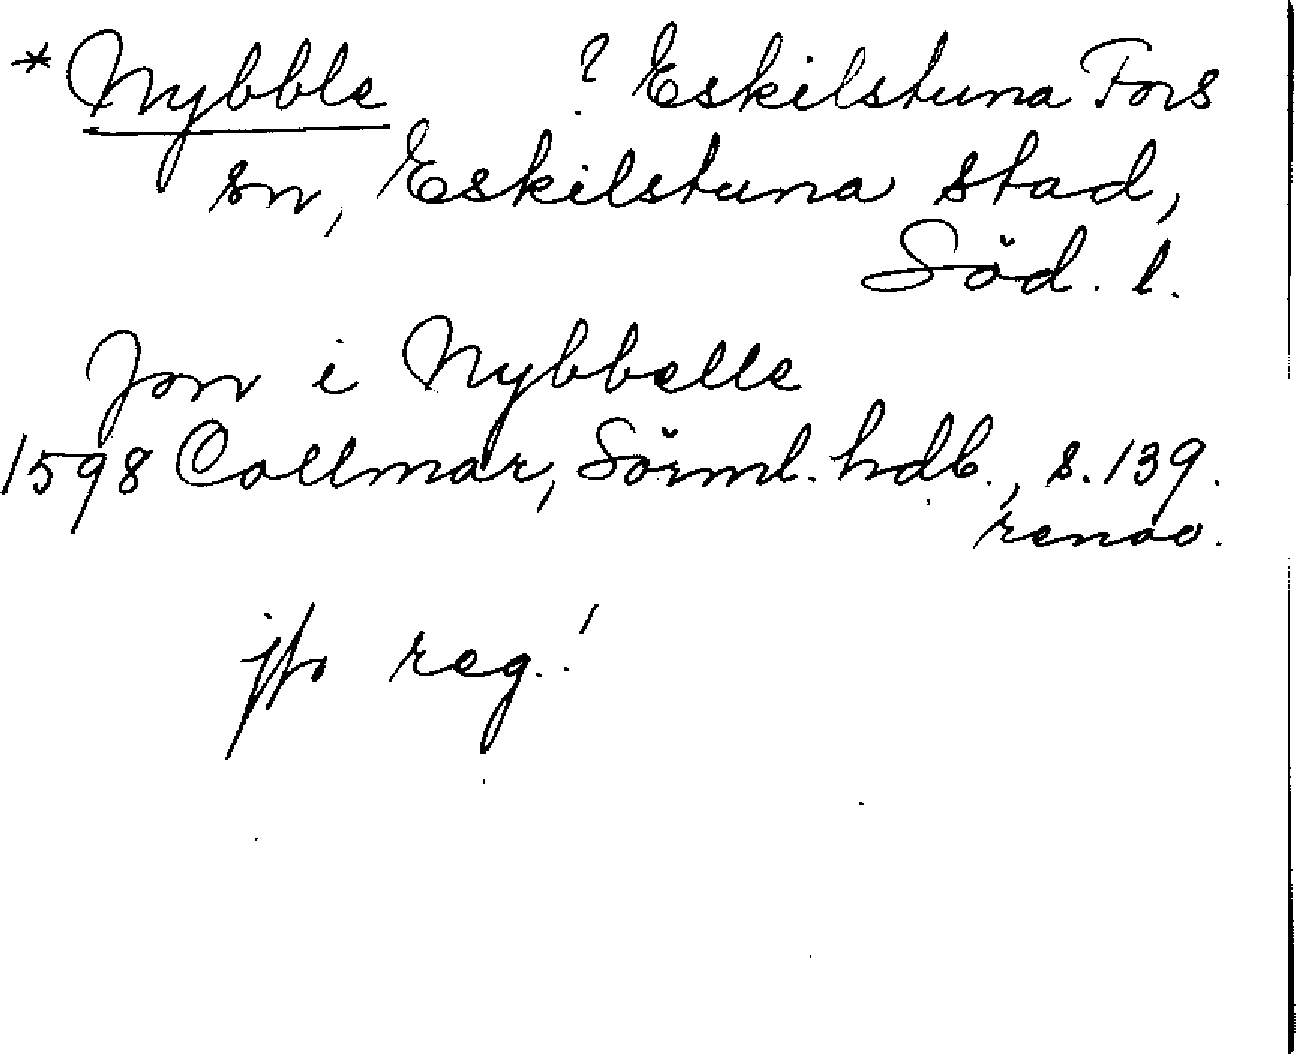 *Nybble ? Eskilstuna Fors
sn, Eskilstuna stad,
Söd. l.
Jon i Nybbelle
1598 Collmar, Sörml. hdb., s. 139.
renov.
jfr reg.!